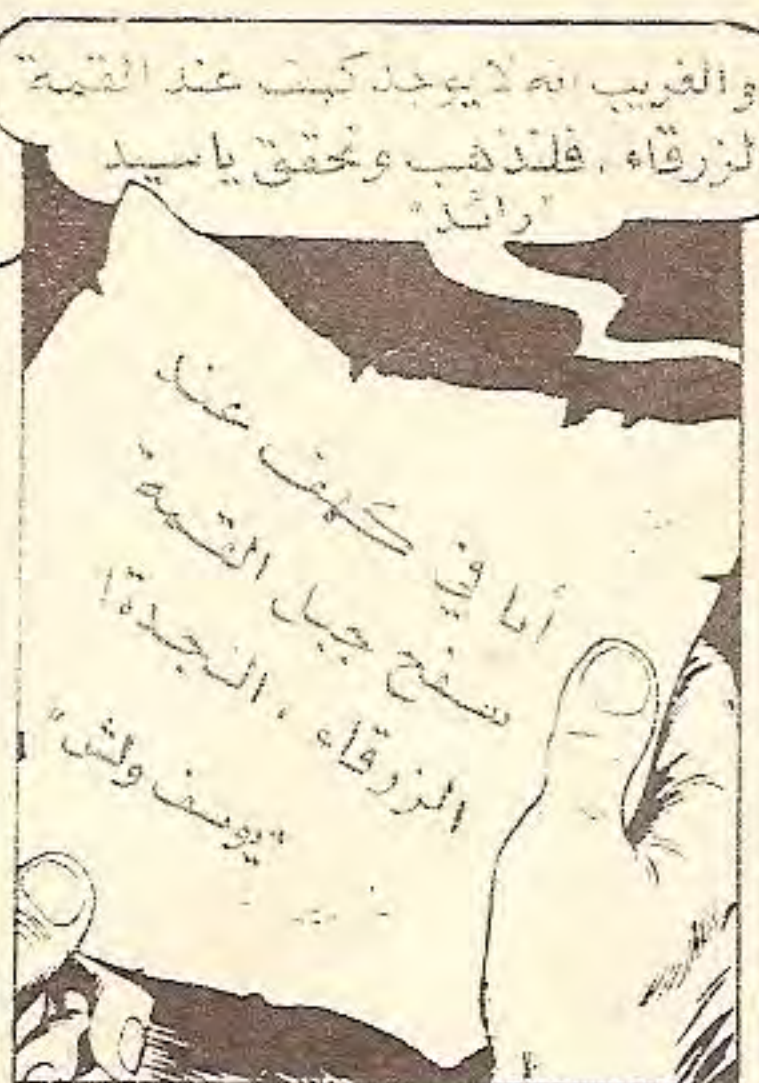 والغريب انه لا يوجد كهف عند القمة
الزرقاء . فلنذهب ونحقق يا سيد
"رائد"
أنا في كهف عند
سفح جبل القمة
الزرقاء ، النجدة!
"يوسف ولش"